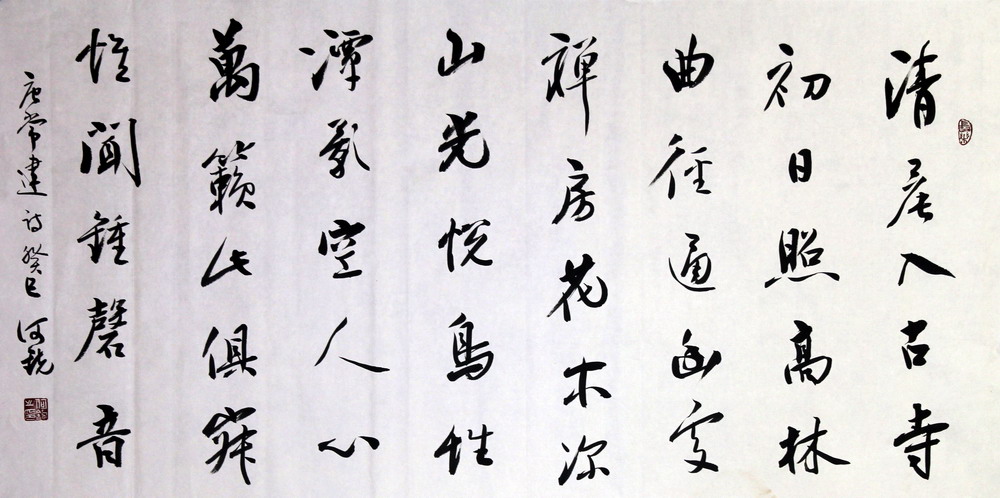 清晨入古寺
初日照高林
曲径通幽處
禅房花木深
山光悦鳥性
潭影空人心
萬籟此俱寂
惟聞鍾磬音
唐常建诗癸巳河锐